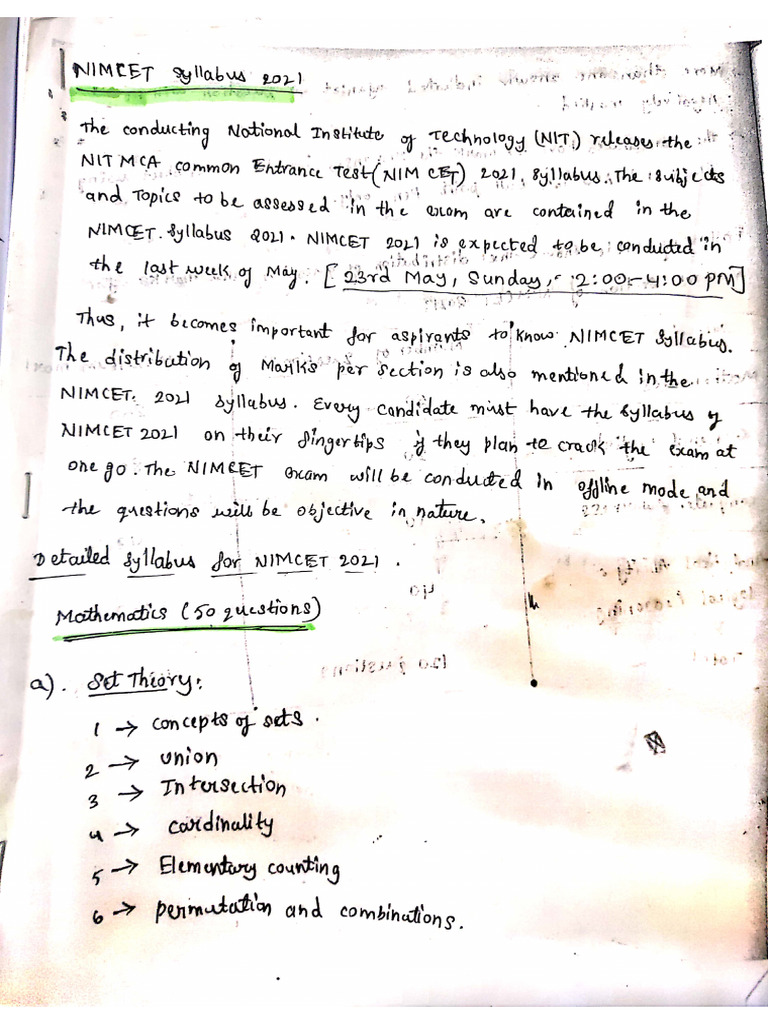 NIMCET Syllabus 2021
The conducting National Institute of Technology (NIT) releases the
NIT MCA common Entrance Test (NIM CET) 2021, Syllabus. The subjects
and Topics to be assessed in the exam are contained in the
NIMCET. Syllabus 2021. NIMCET 2021 is expected to be conducted in
the last week of May. [23rd May, Sunday, - 2:00 - 4:00 PM]
Thus, it becomes important for aspirants to know NIMCET Syllabus.
The distribution of Marks per section is also mentioned in the
NIMCET. 2021 syllabus. Every candidate must have the syllabus of
NIMCET 2021 on their fingertips if they plan to crack the exam at
one go. The NIMCET exam will be conducted in offline mode and
the questions will be objective in nature.
Detailed Syllabus for NIMCET 2021.
Mathematics (50 questions)
a). Set Theory:
1 → concepts of sets.
2 → union
3 → Intersection
4 → cardinality
5 → Elementary counting
6 → permutation and combinations.